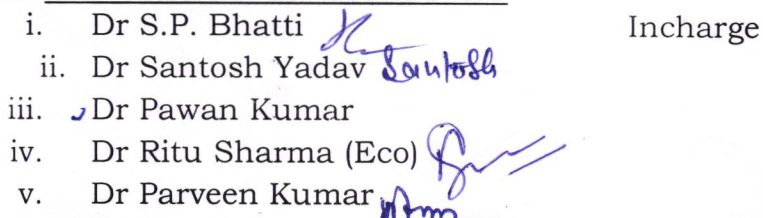 i. Dr S.P. Bhatti Incharge
ii. Dr Santosh Yadav Santosh
iii. Dr Pawan Kumar
iv. Dr Ritu Sharma (Eco)
v. Dr Parveen Kumar